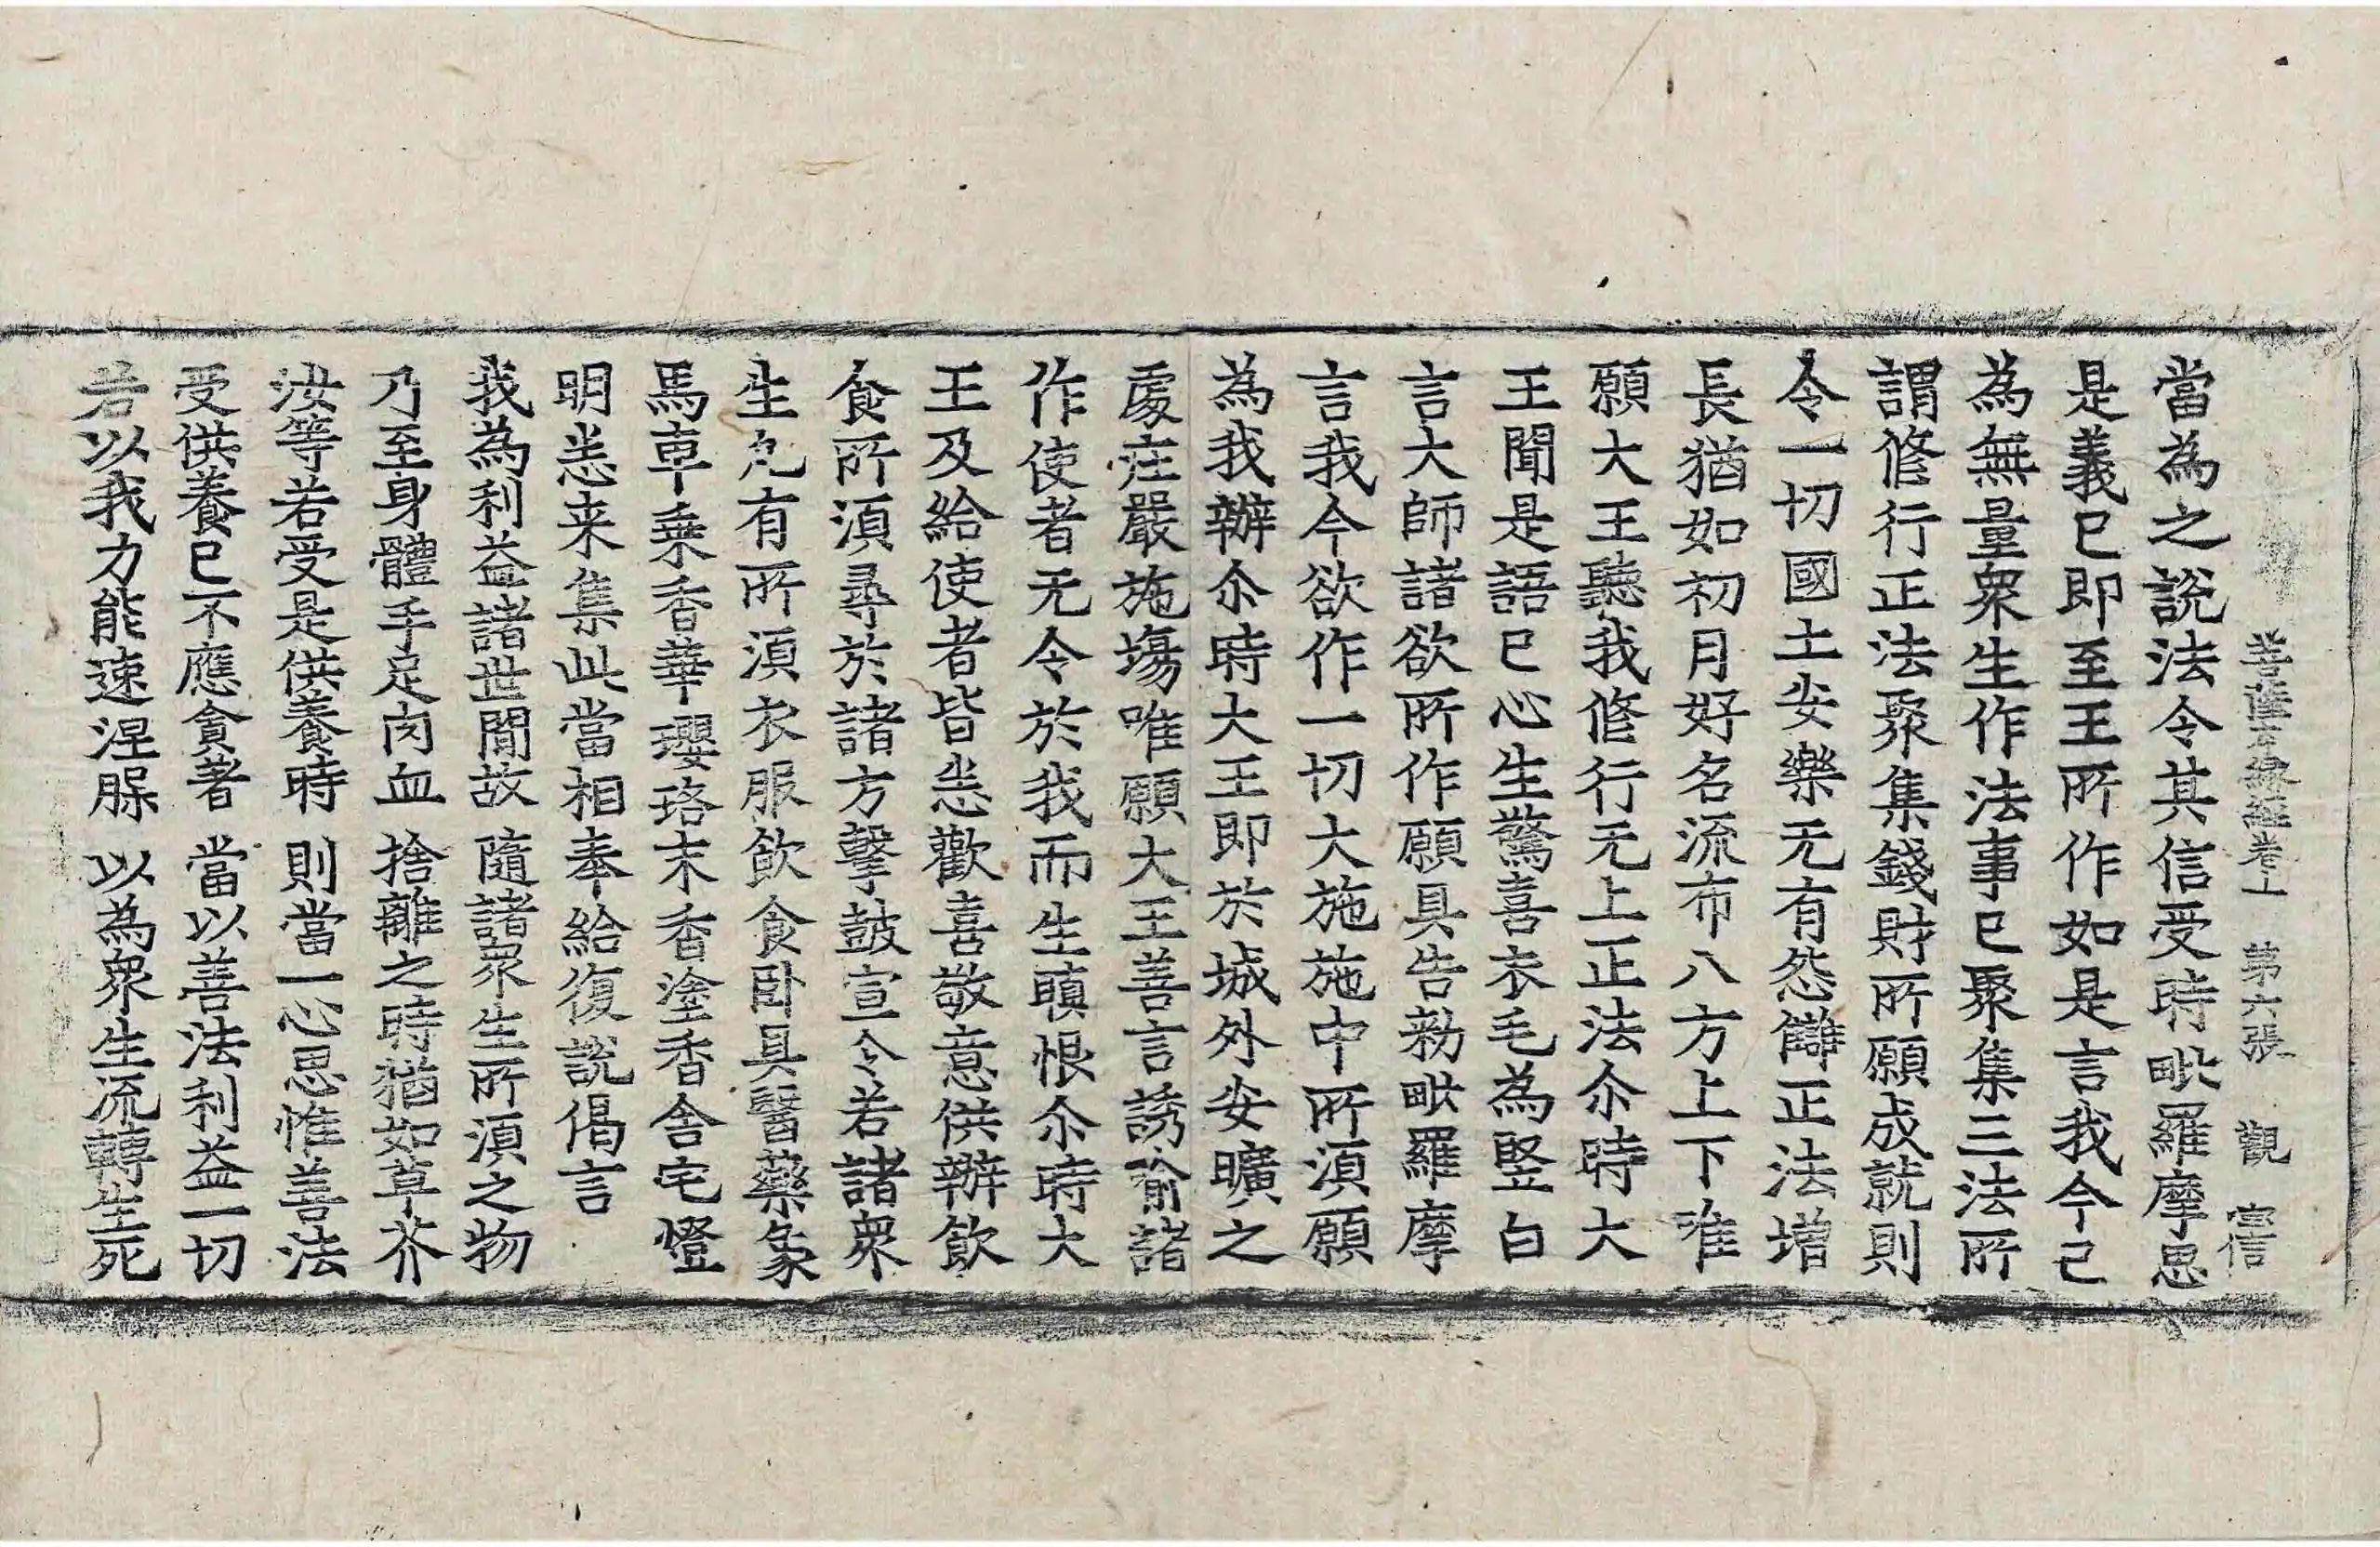 菩薩本緣經卷上 第六張 觀 宙信
當為之說法令其信受時毗羅摩思
是義已即至王所作如是言我今已
為無量衆生作法事已聚集三法所
謂修行正法聚集錢財所願成就則
令一切國土安樂无有怨讎正法增
長猶如初月好名流布八方上下唯
願大王聽我修行无上正法尒時大
王聞是語已心生驚喜衣毛為竪白
言大師諸欲所作願具告勑毗羅摩
言我今欲作一切大施施中所湏願
為我辦尒時大王即於城外安曠之
處庄嚴施塲唯願大王善言誘喻諸
作使者无令於我而生瞋恨尒時大
王及給使者皆悉歡喜敬意供辦飲
食所湏尋於諸方擊鼓宣令若諸衆
生凢有所湏衣服飲食卧具醫藥象
馬車乗香華瓔珞末香塗香舍宅燈
明悉来集此當相奉給復說偈言
我為利益諸世間故 隨諸衆生所湏之物
乃至身體手足肉血 捨離之時猶如草芥
汝等若受是供養時 則當一心思惟善法
受供養已不應貪著 當以善法利益一切
若以我力能速涅槃 以為衆生流轉生死